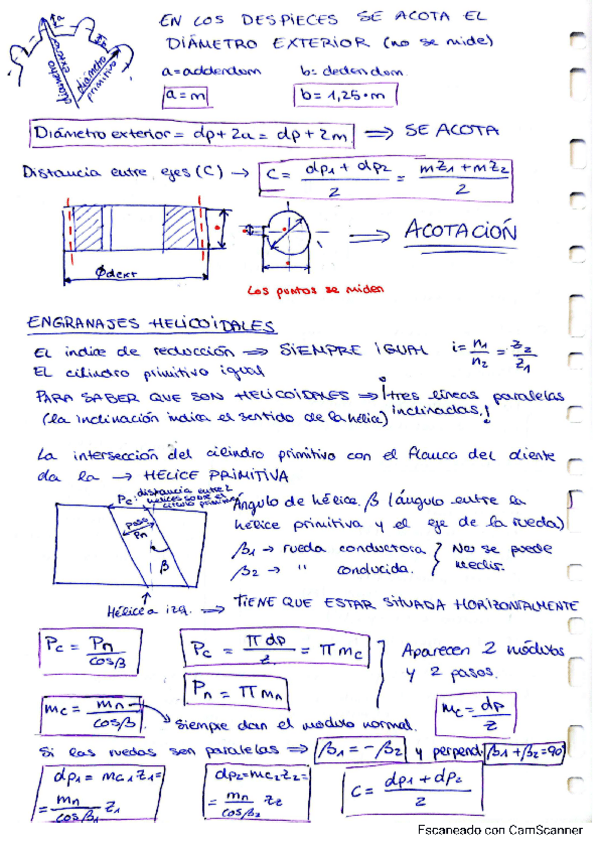 EN LOS DESPIECES SE ACOTA EL
DIÁMETRO EXTERIOR (no se mide)
diámetro exterior
diámetro primitivo
a = addendom b = dedendom
a = m b = 1,25·m
Diámetro exterior = dp + 2a = dp + 2m ⟹ SE ACOTA
Distancia entre ejes (C) → C = (dp1 + dp2)/2 = (mZ1 + mZ2)/2
⟹ ACOTACIÓN
Ødext
Los puntos se miden
ENGRANAJES HELICOIDALES
El indice de reducción ⟹ SIEMPRE IGUAL i = n1/n2 = Z2/Z1
El cilindro primitivo igual
PARA SABER QUE SON HELICOIDALES ⟹ ¡tres lineas paralelas
(la inclinación indica el sentido de la hélice) inclinadas!
La intersección del cilindro primitivo con el flanco del diente
da la → HELICE PRIMITIVA
Pc: distancia entre 2
hélices sobre el
circulo primitivo
paso
Pn
β
Ángulo de hélice, β (ángulo entre la
hélice primitiva y el eje de la rueda)
β1 → rueda conductora } No se puede
β2 → " conducida. } medir.
Hélice a izq. ⟹ TIENE QUE ESTAR SITUADA HORIZONTALMENTE
Pc = Pn/cosβ Pc = π dp/z = π mc } Aparecen 2 módulos
Pn = π mn y 2 pasos.
mc = mn/cosβ → Siempre dan el modulo normal. mc = dp/z
Si las ruedas son paralelas ⟹ β1 = -β2 y perpendi β1 + β2 = 90
dp1 = mc1 Z1 = dp2 = mc2 Z2 = C = (dp1 + dp2)/2
= mn/cosβ1 Z1 = mn/cosβ2 Z2
Escaneado con CamScanner